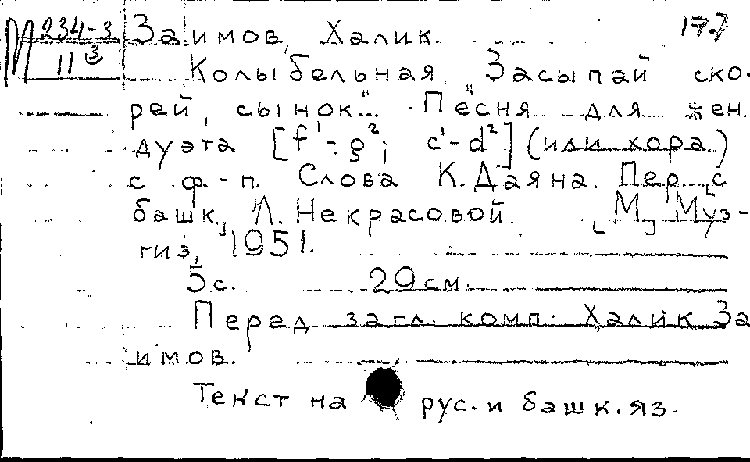 М 234-3 Заимов, Халик. 17.7
11③ Колыбельная "Засыпай ско-
рей, сынок". Песня для жен.
дуэта [f¹-g²; c¹-d²] (или хора)
с ф-п. Слова К. Даяна. Пер. [с
башк.] Л. Некрасовой. [М.] Муз-
гиз, 1951.
5 с. 29 см.
Перед загл. комп. Халик За
имов.
Текст на рус. и башк. яз.